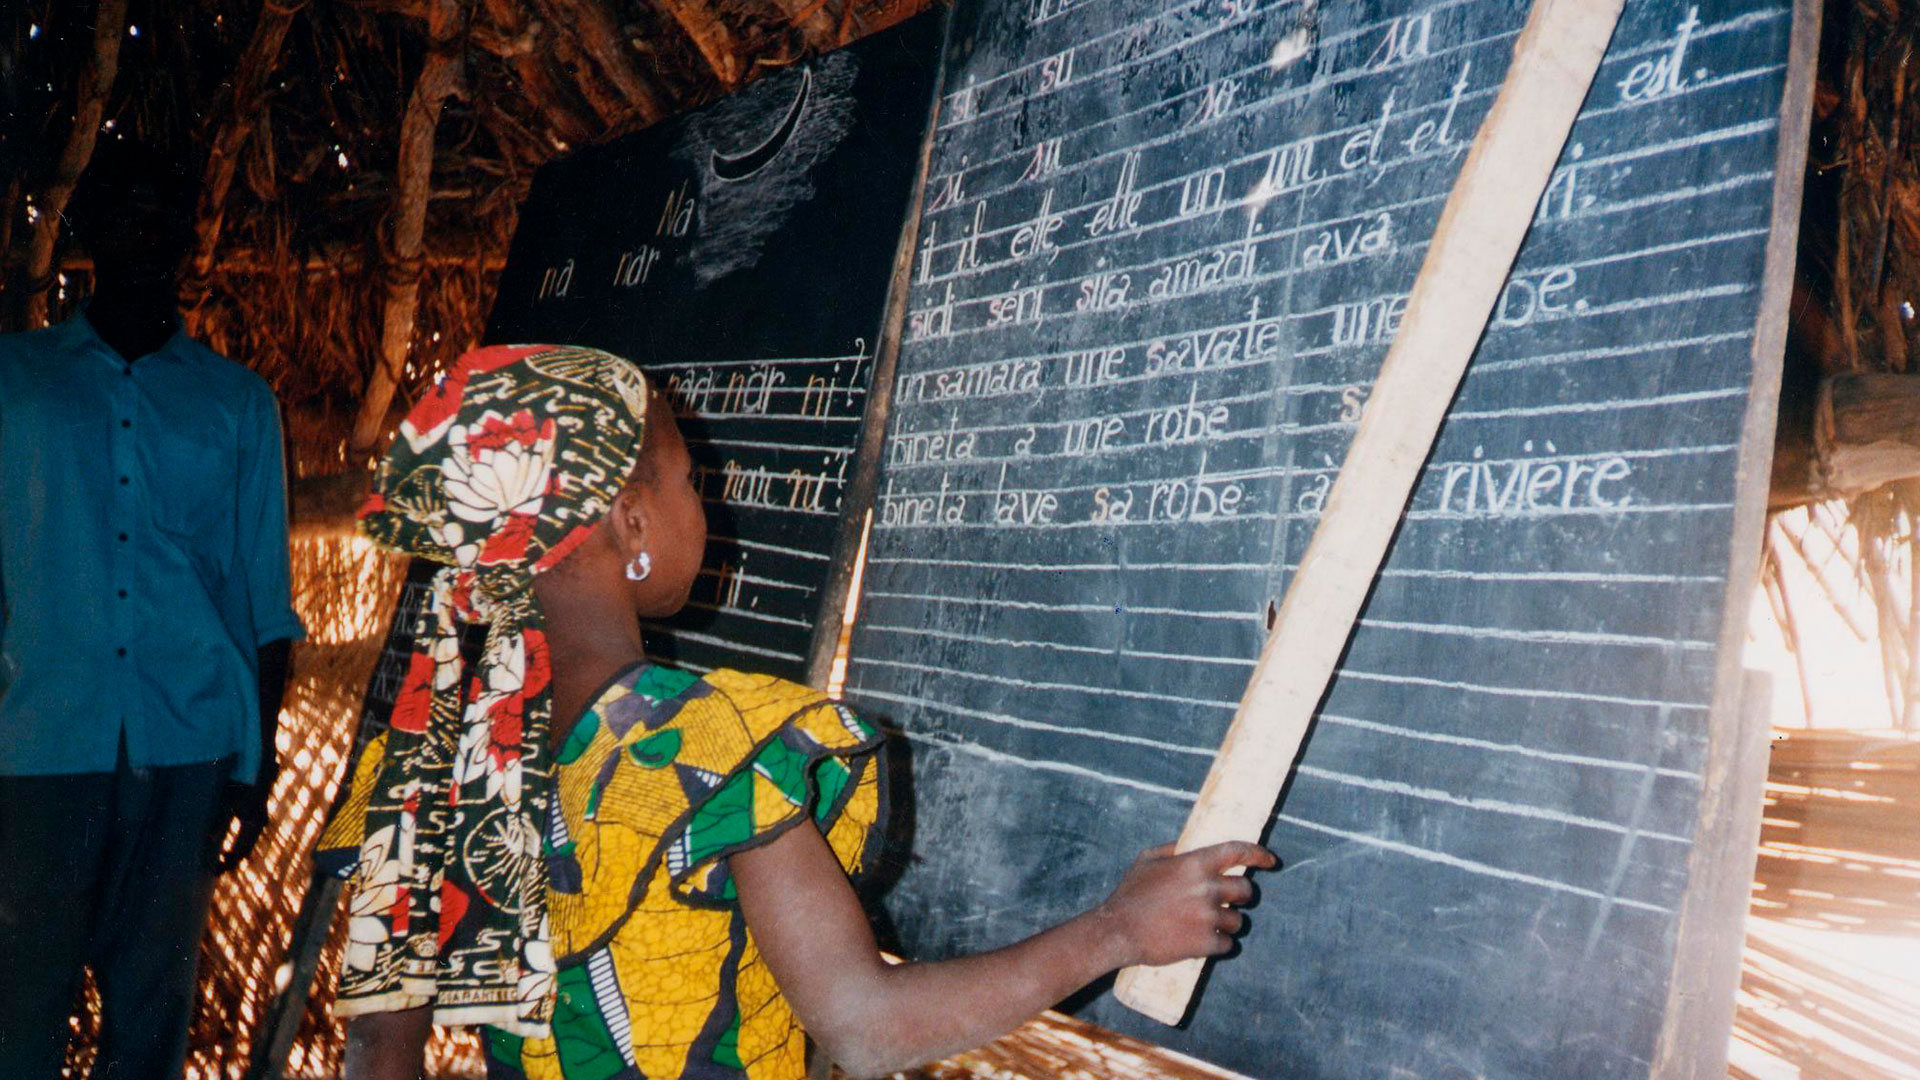 Na
na nar
naa nar ni?
nar ni?
ni.
si su so sa
si su
it il elle, elle, un, un, et, et, est.
sidi séri, sira, amadi ava ri.
un samara, une savate une be.
bineta a une robe
bineta lave sa robe à rivière